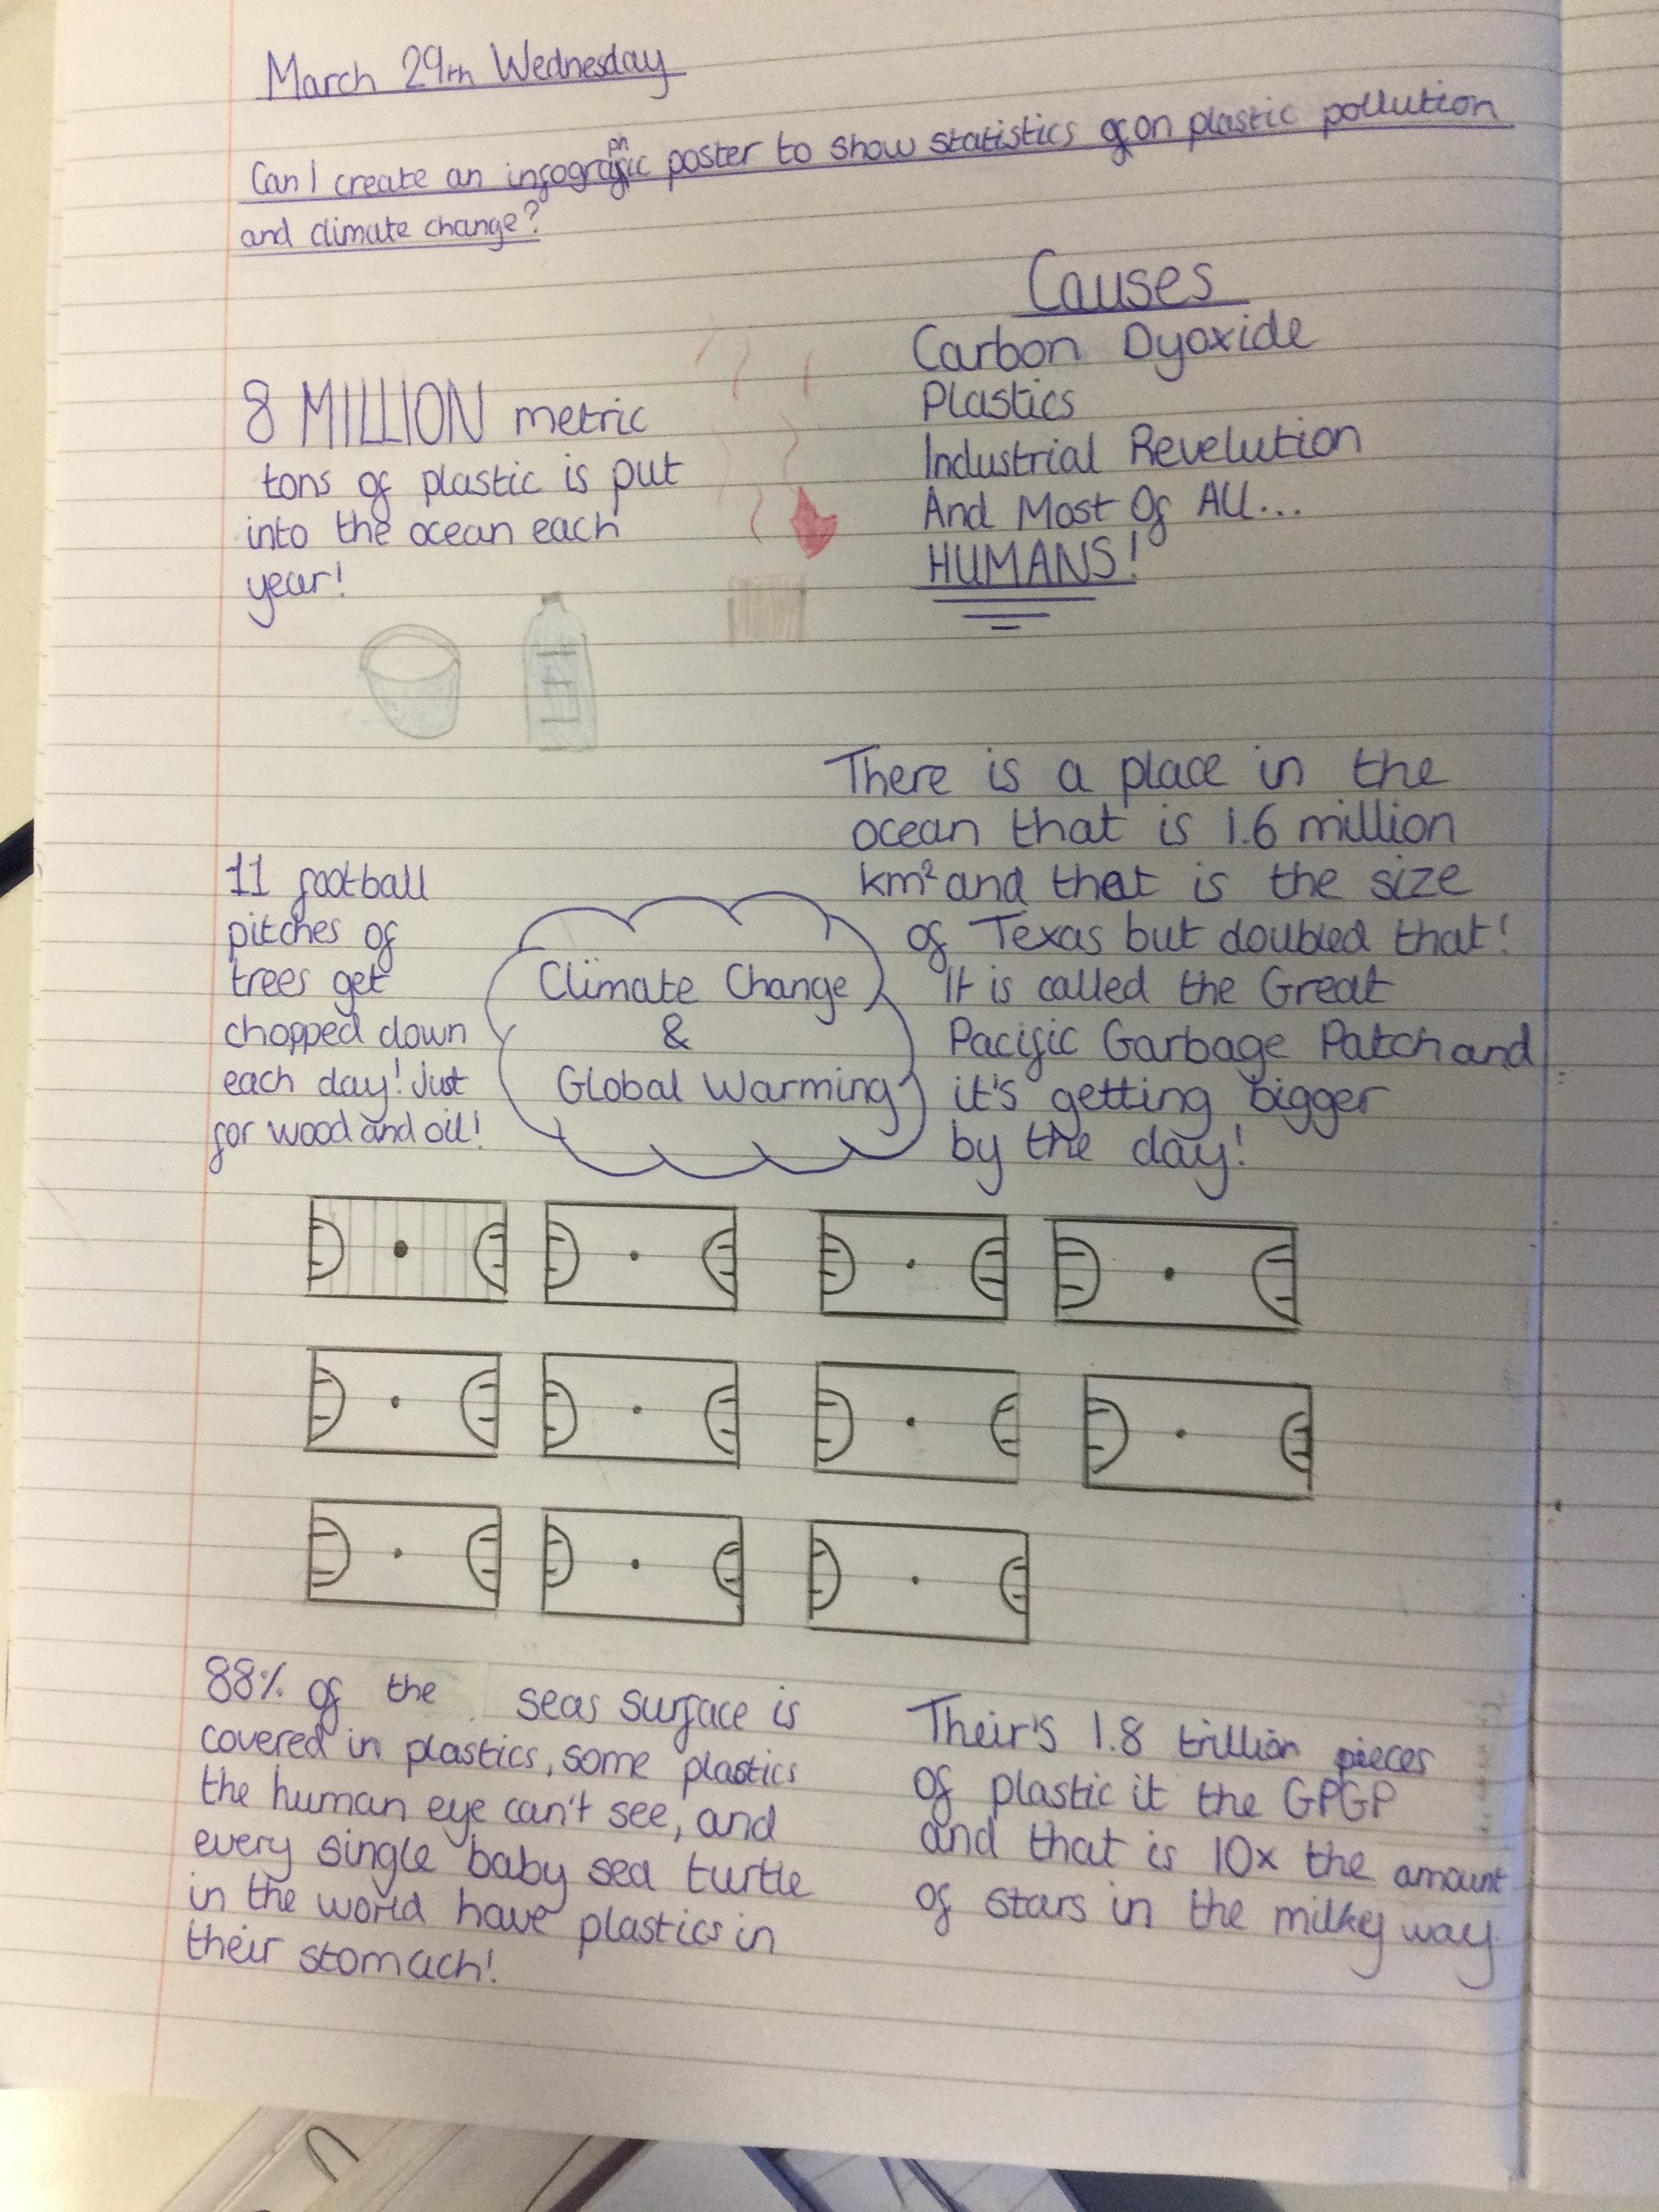 March 29th Wednesday
Can I create an infographic poster to show statistics on plastic pollution
and climate change?
Causes
Carbon Dyoxide
Plastics
Industrial Revelution
And Most Of All...
HUMANS!
8 MILLION metric
tons of plastic is put
into the ocean each
year!
There is a place in the
ocean that is 1.6 million
km² and that is the size
of Texas but doubled that!
It is called the Great
Pacific Garbage Patch and
it's getting bigger
by the day!
11 football
pitches of
trees get
chopped down
each day! Just
for wood and oil!
Climate Change
&
Global Warming
88% of the seas surface is
covered in plastics, some plastics
the human eye can't see, and
every single baby sea turtle
in the world have plastics in
their stomach!
Their's 1.8 trillion pieces
of plastic it the GPGP
and that is 10x the amount
of stars in the milky way.